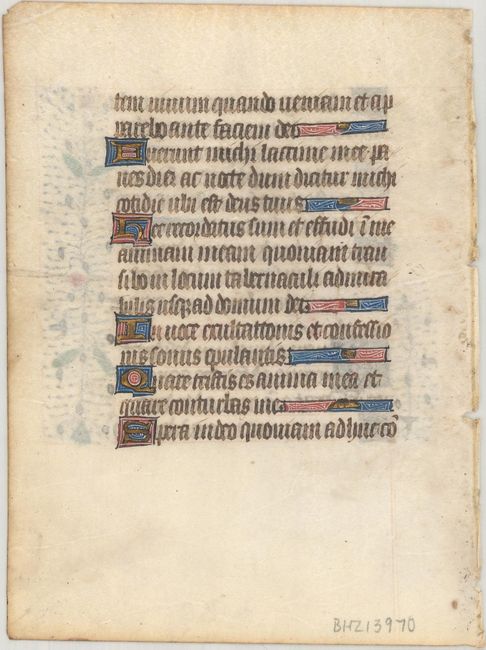 tem vivum quando veniam et ap
parebo ante faciem dei
Fuerunt michi lacrime mee pa
nes die ac nocte dum dicitur michi
cotidie ubi est deus tuus
Hec recordatus sum et effudi ī me
animam meam quoniam tran
sibo in locum tabernaculi admira
bilis usq ad domum dei
In voce exultationis et confessio
nis sonus epulantis
Quare tristis es anima mea et
quare conturbas me
Spera in deo quoniam adhuc cō
BHZ13970